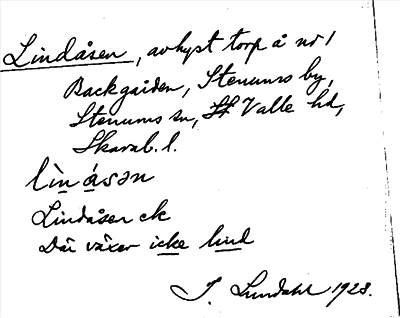 Lindåsen, avhyst torp å nr 1
Backgården, Stenums by,
Stenums sn, Valle hd,
Skarab. l.
lìnásən
Lindåsen ek
Där växer icke lind
I. Lundahl 1928.